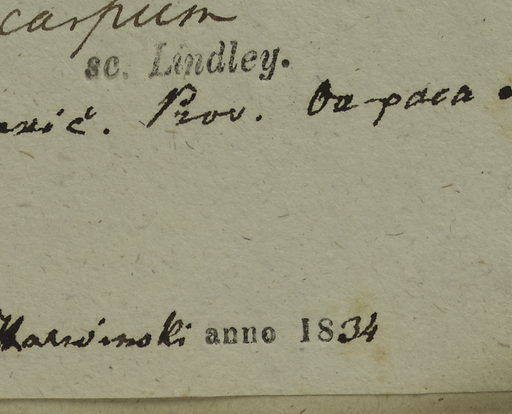 carpum
sc. Lindley.
exić. Prov. Oaxpaca.
Karwinski anno 1834